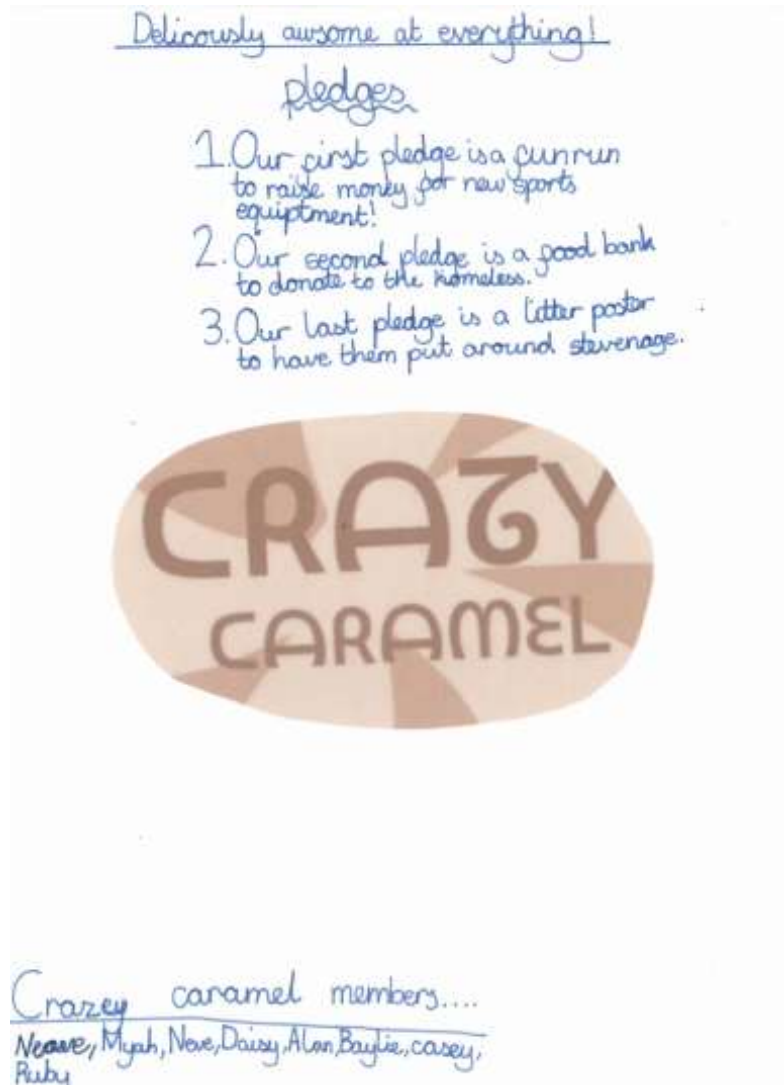 Delicously awsome at everything!
pledges
1. Our first pledge is a fun run
to raise money for new sports
equiptment!
2. Our second pledge is a food bank
to donate to the homeless.
3. Our last pledge is a litter poster
to have them put around stevenage.
CRAZY
CARAMEL
Crazey caramel members....
Neave, Myah, Neve, Daisy, Alan, Baylie, casey,
Ruby